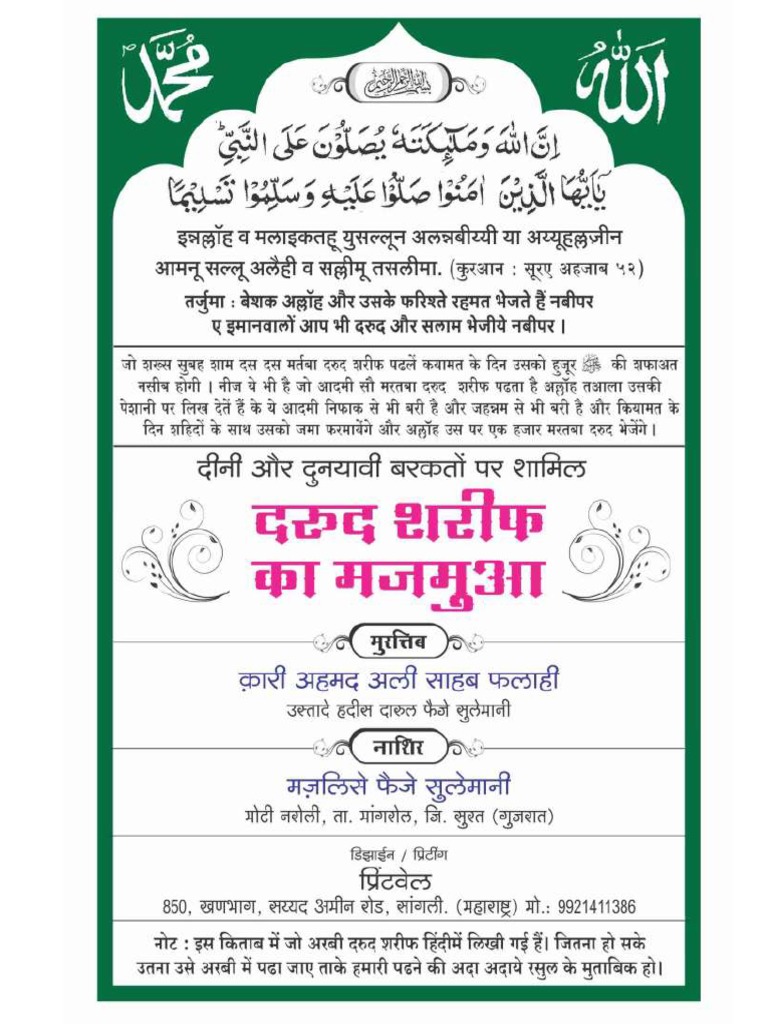 محمد
الله
بسم الله الرحمن الرحيم
اِنَّ اللّٰهَ وَمَلٰٓئِكَتَهٗ يُصَلُّوْنَ عَلَى النَّبِيِّ
يٰٓاَيُّهَا الَّذِيْنَ اٰمَنُوْا صَلُّوْا عَلَيْهِ وَسَلِّمُوْا تَسْلِيْمًا
इन्नल्लॉह व मलाइकतहू युसल्लून अलन्नबीय्यी या अय्यूहल्लज़ीन
आमनू सल्लू अलैही व सल्लीमू तसलीमा. (कुरआन : सूरए अहजाब ५२)
तर्जुमा : बेशक अल्लॉह और उसके फरिश्ते रहमत भेजते हैं नबीपर
ए इमानवालों आप भी दरुद और सलाम भेजीये नबीपर ।
जो शख्स सुबह शाम दस दस मर्तबा दरुद शरीफ पढलें कयामत के दिन उसको हुजूर ﷺ की शफाअत
नसीब होगी । नीज ये भी है जो आदमी सौ मरतबा दरुद शरीफ पढता है अल्लॉह तआला उसकी
पेशानी पर लिख देतें हैं के ये आदमी निफाक से भी बरी है और जहन्नम से भी बरी है और कियामत के
दिन शहिदों के साथ उसको जमा फरमायेंगे और अल्लॉह उस पर एक हजार मरतबा दरुद भेजेंगे ।
दीनी और दुनयावी बरकतों पर शामिल
दरुद शरीफ
का मजमुआ
मुरत्तिब
क़ारी अहमद अली साहब फलाही
उस्तादे हदीस दारुल फैजे सुलेमानी
नाशिर
मज़लिसे फैजे सुलेमानी
मोटी नरोली, ता. मांगरोल, जि. सुरत (गुजरात)
डिझाईन / प्रिटींग
प्रिंटवेल
850, खणभाग, सय्यद अमीन रोड, सांगली. (महाराष्ट्र) मो.: 9921411386
नोट : इस किताब में जो अरबी दरुद शरीफ हिंदीमें लिखी गई हैं। जितना हो सके
उतना उसे अरबी में पढा जाए ताके हमारी पढने की अदा अदाये रसुल के मुताबिक हो।